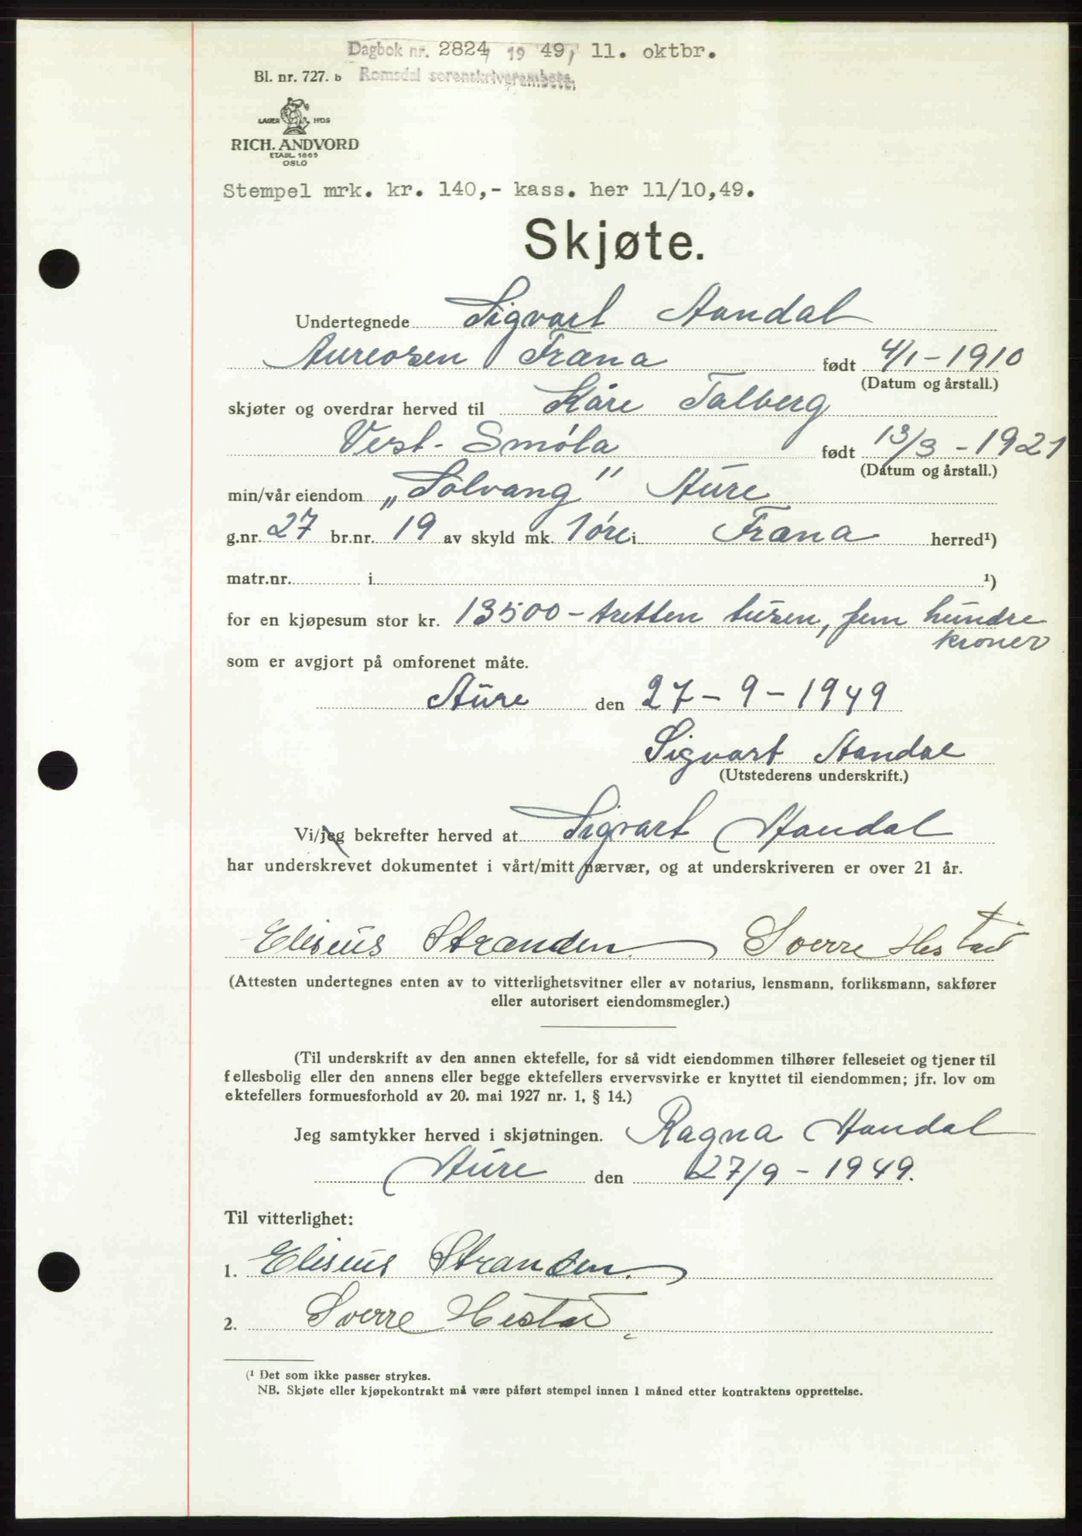 Dagbok nr. 2824, 19 49, 11. oktbr.
Bl. nr. 727. b Romsdal sorenskriverembete.
LAGER HOS
RICH. ANDVORD
ETABL. 1865
OSLO
Stempel mrk. kr. 140,- kass. her 11/10,49.
Skjøte.
Undertegnede Sigvart Aandal
Aureosen Fræna født 4/1-1910
(Datum og årstall.)
skjøter og overdrar herved til Kåre Talberg
Vest-Smøla født 13/3-1921
(Datum og årstall.)
min/vår eiendom „Solvang" Aure
g.nr. 27 br.nr. 19 av skyld mk. 1 øre i Fræna herred¹)
matr.nr. i ¹)
for en kjøpesum stor kr. 13500 - tretten tusen, fem hundre
kroner
som er avgjort på omforenet måte.
Aure den 27-9-1949
Sigvart Aandal
(Utstederens underskrift.)
Vi/jeg bekrefter herved at Sigvart Aandal
har underskrevet dokumentet i vårt/mitt nærvær, og at underskriveren er over 21 år.
Eliseus Stranden. Sverre Hestad
(Attesten undertegnes enten av to vitterlighetsvitner eller av notarius, lensmann, forliksmann, sakfører
eller autorisert eiendomsmegler.)
(Til underskrift av den annen ektefelle, for så vidt eiendommen tilhører felleseiet og tjener til
fellesbolig eller den annens eller begge ektefellers ervervsvirke er knyttet til eiendommen; jfr. lov om
ektefellers formuesforhold av 20. mai 1927 nr. 1, § 14.)
Jeg samtykker herved i skjøtningen. Ragna Aandal
Aure den 27/9-1949.
Til vitterlighet:
1. Eliseus Stranden.
2. Sverre Hestad
(¹ Det som ikke passer strykes.
NB. Skjøte eller kjøpekontrakt må være påført stempel innen 1 måned etter kontraktens opprettelse.